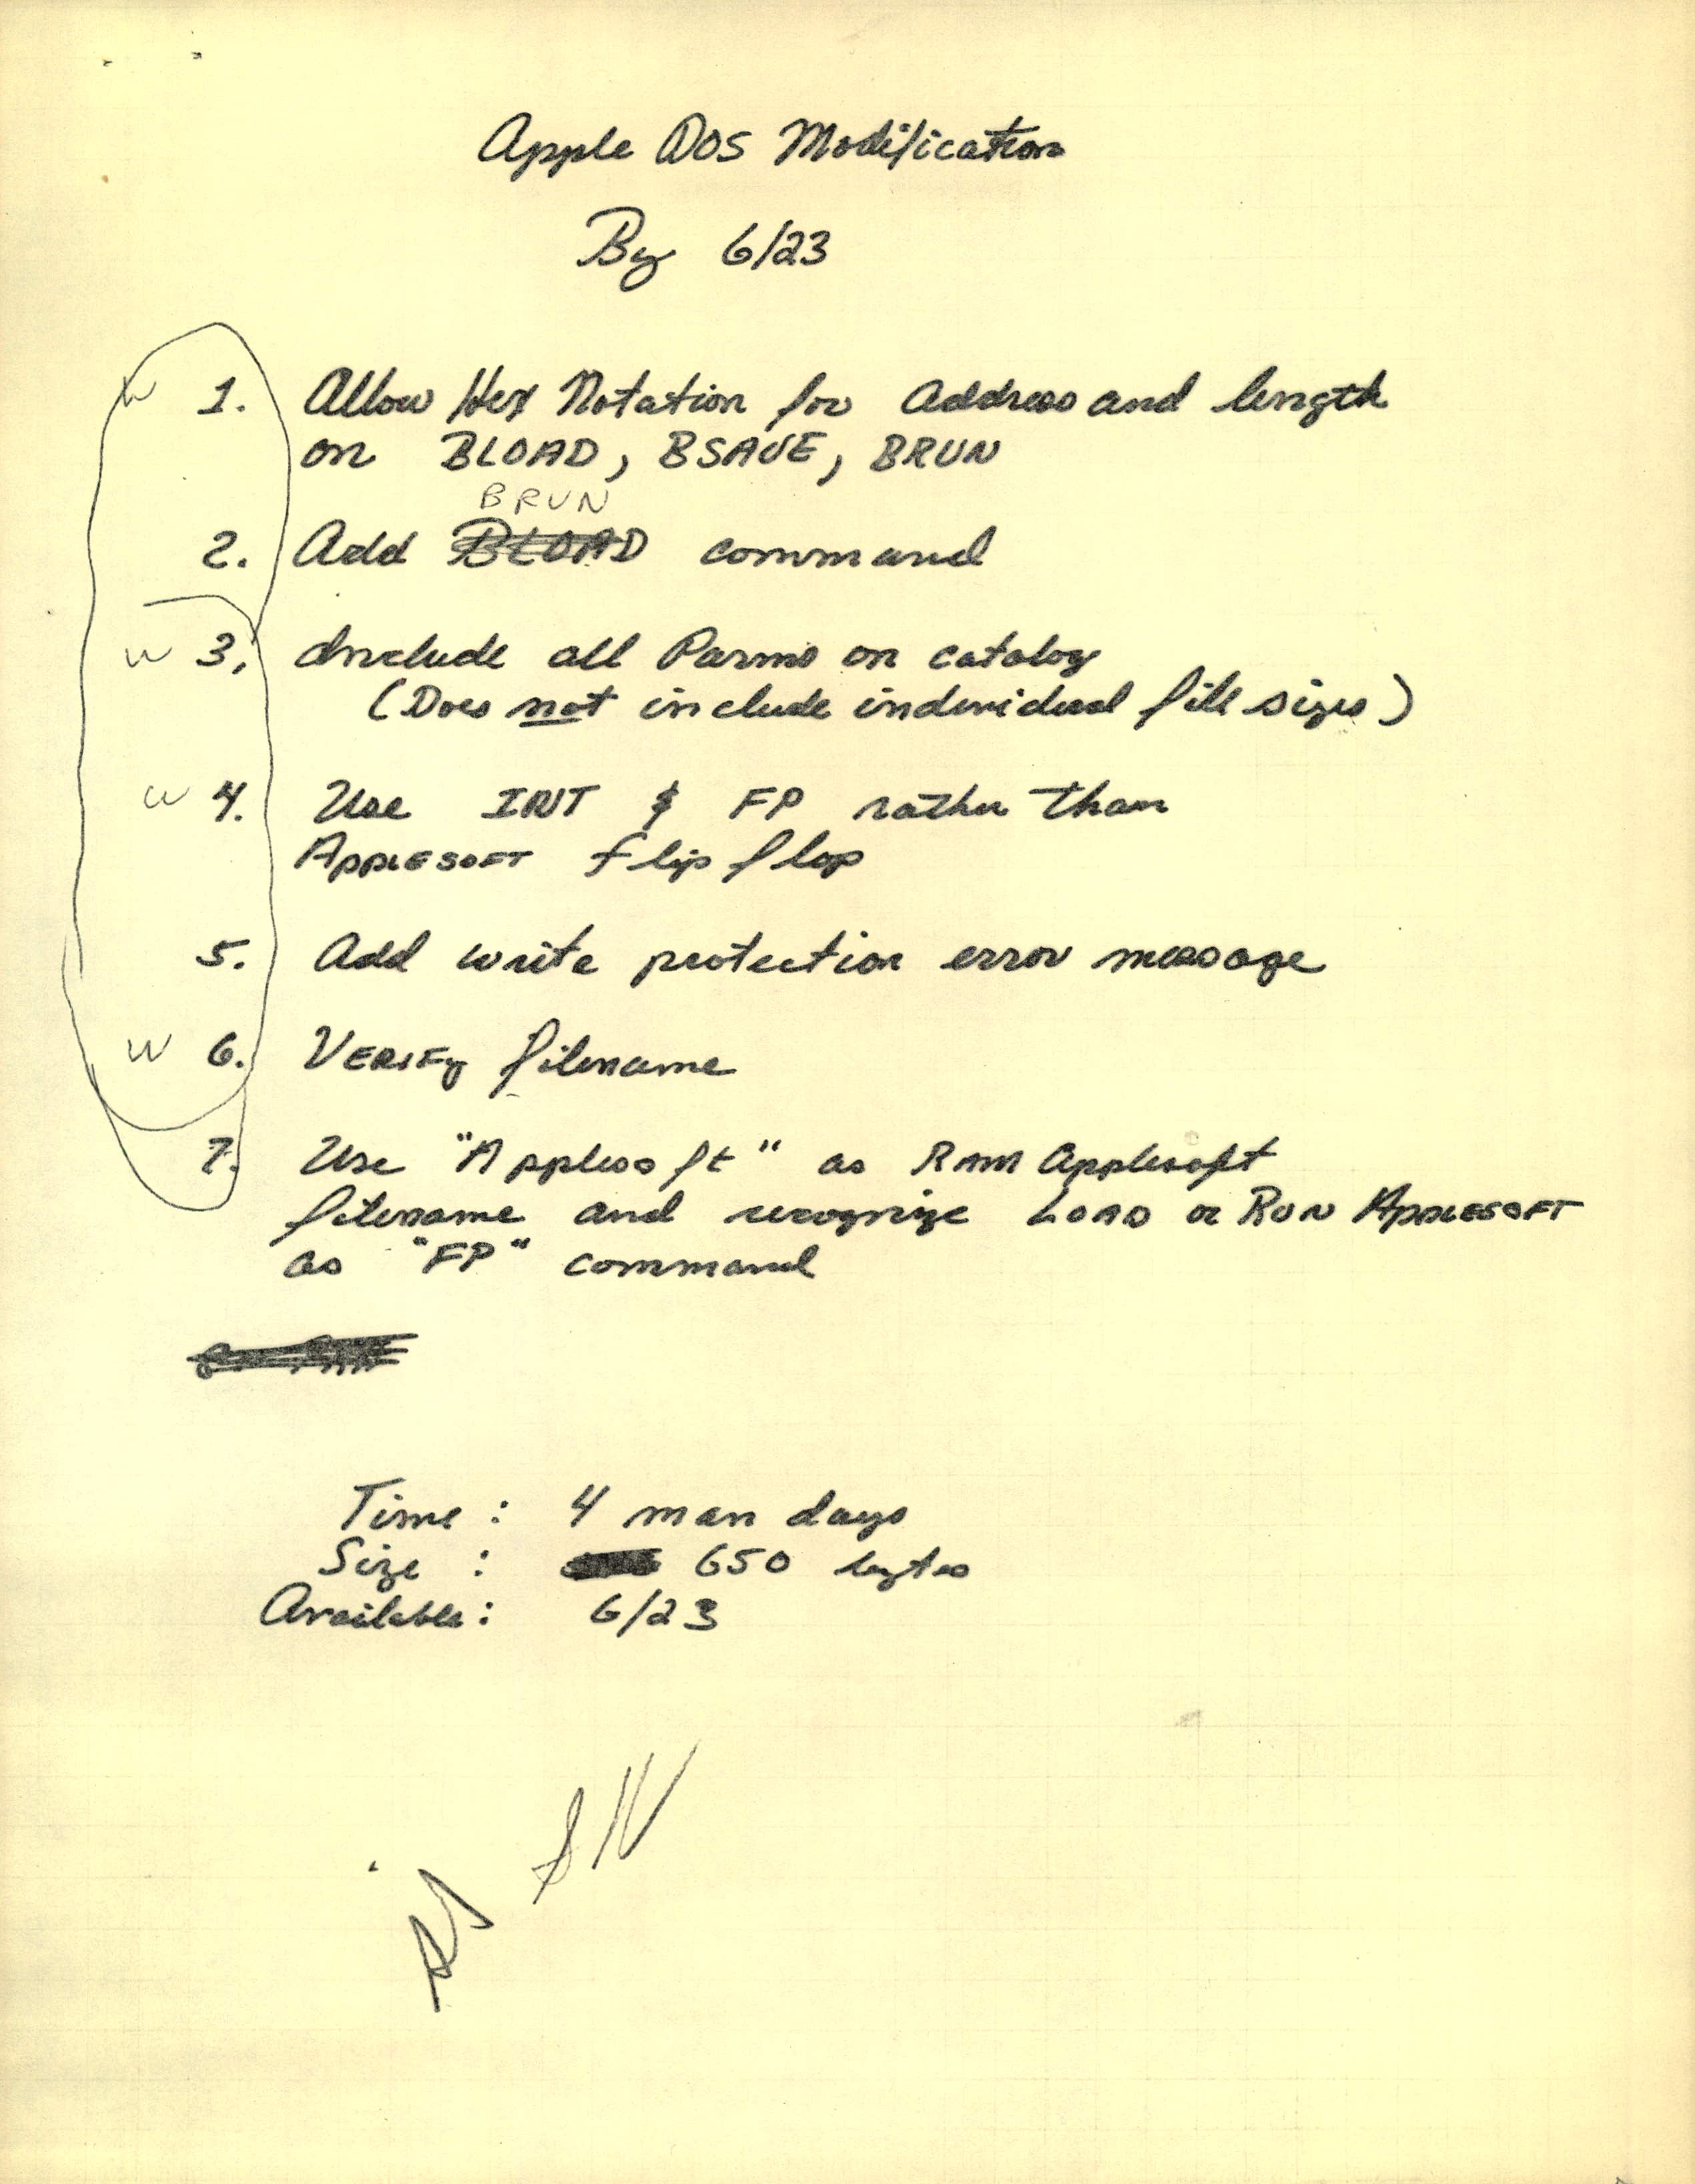 Apple DOS Modification
By 6/23
w 1. Allow Hex Notation for Address and length
on BLOAD, BSAVE, BRUN
BRUN
2. Add BLOAD command
w 3. Include all Parms on catalog
(Does not include individual file sizes)
w 4. Use INT & FP rather than
APPLESOFT flip flop
5. Add write protection error message
w 6. VERIFy filename
7. Use "Applesoft" as RAM Applesoft
filename and recognize LOAD or RUN APPLESOFT
as "FP" command
Time : 4 man days
Size : 650 bytes
Available: 6/23